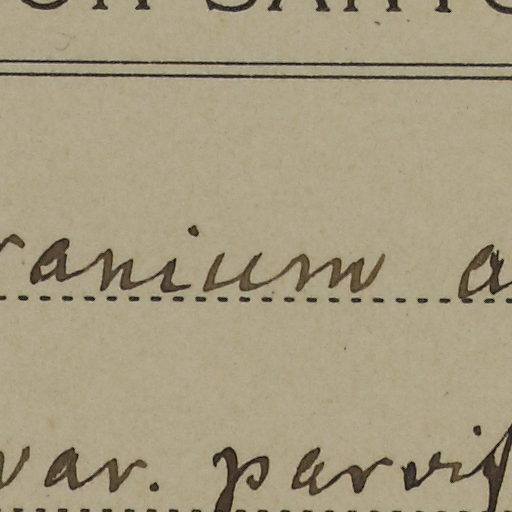 ranium a
var. parvif